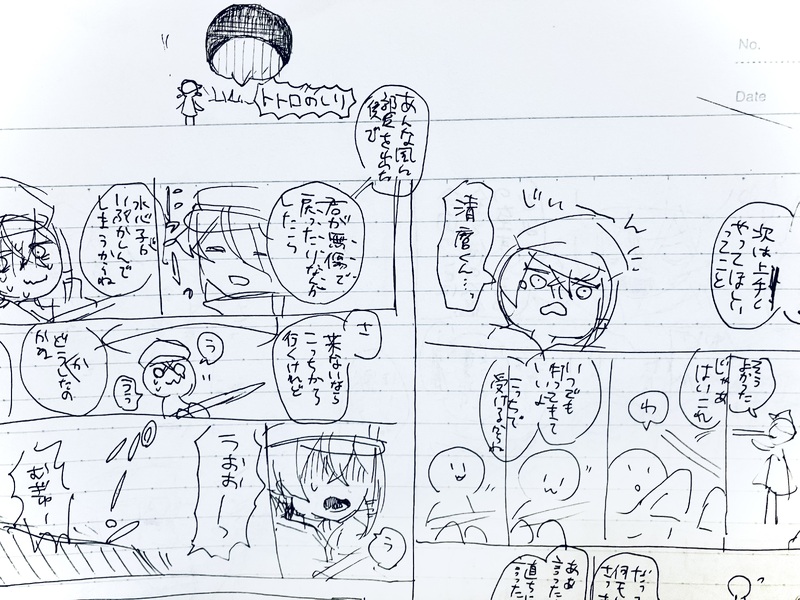 No.
Date
トトロのしり
次は上手く
やってほしい
ってこと
じぃ
ん
清麿くん…っ
そう
よかった
じゃあ
はいこれ
わ
いつでも
切ってきて
いいよ
こっちで
受けるからね
あんな風に
部屋を出た
後で
君が無傷で
戻ったりなどが
したら
水心子が
しまうからね
さ
来ないなら
こっちから
行くけれど
う
うっ
どうしたの
かな
う
うおお
むぎゅ
ああ
言った
直ちに
何も